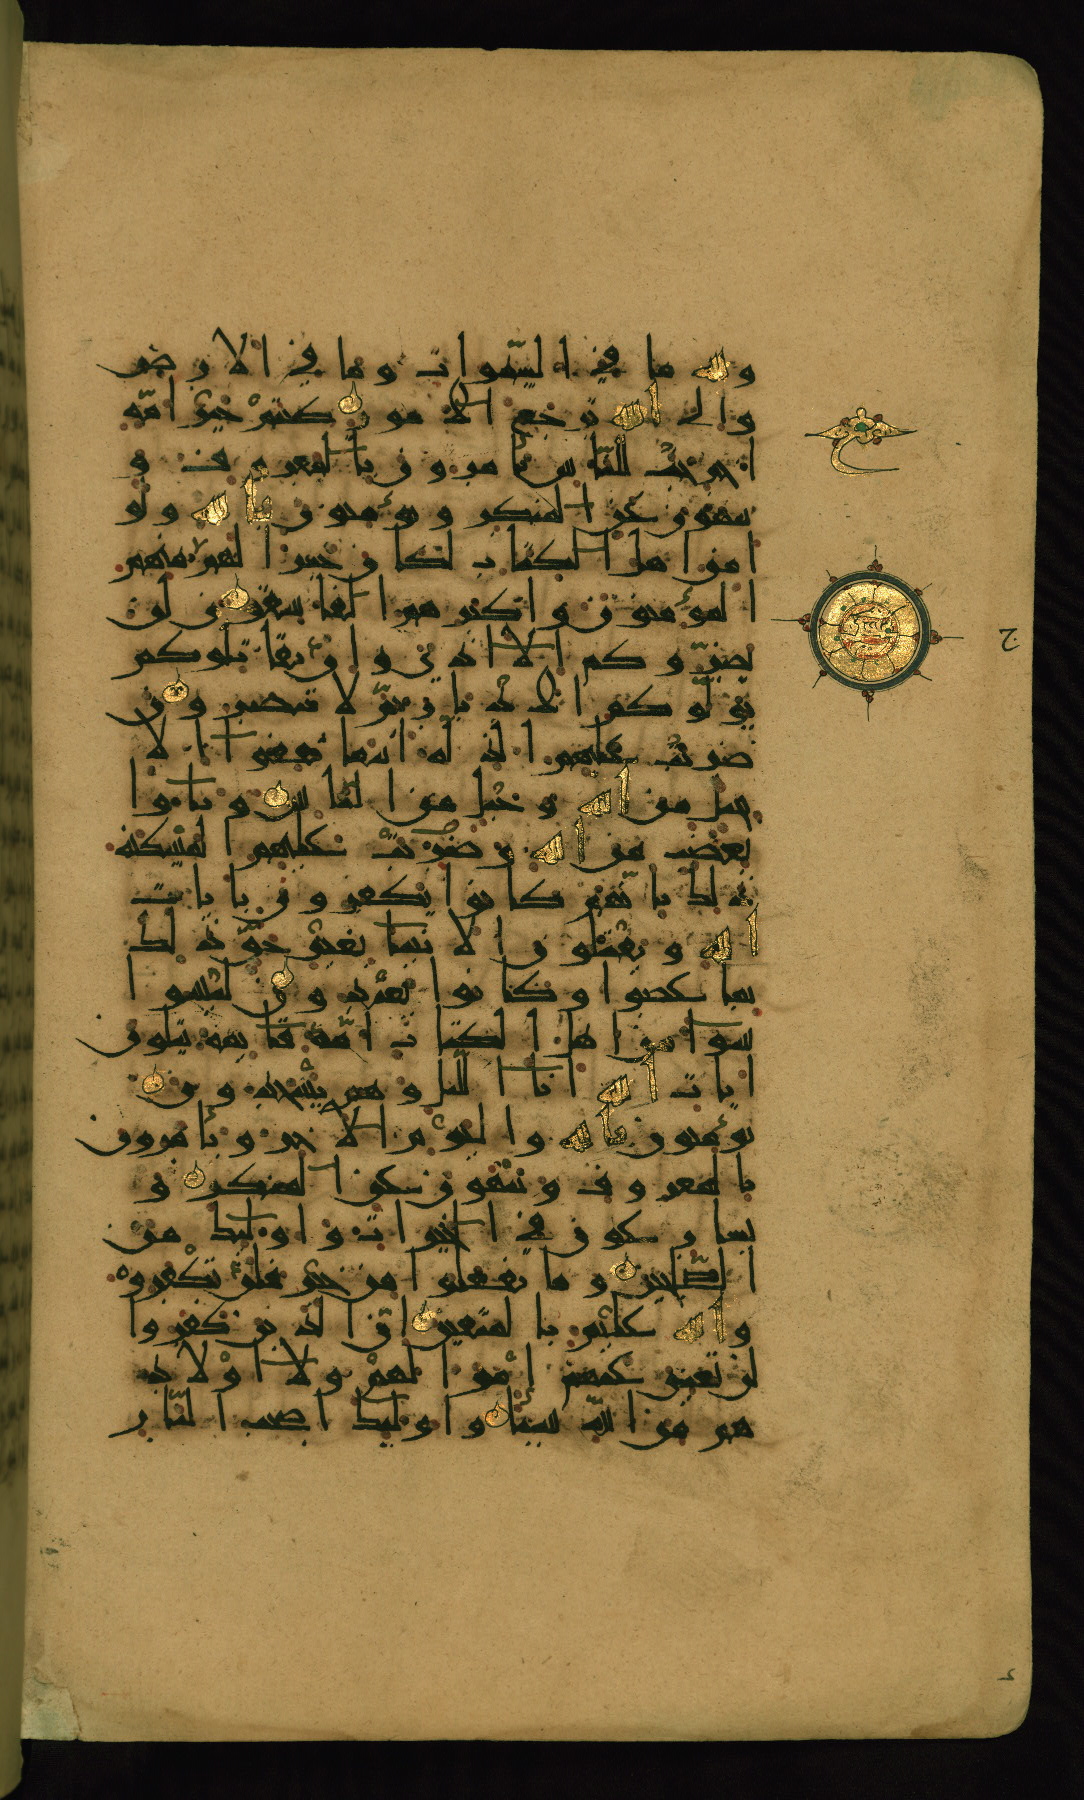 ولله ما في السموات وما في الارض
والى الله ترجع الامور كنتم خير امة
اخرجت للناس تامرون بالمعروف و
تنهون عن المنكر وتؤمنون بالله ولو
امن اهل الكتاب لكان خيرا لهم منهم
المؤمنون واكثرهم الفاسقون لن
يضروكم الا اذى وان يقاتلوكم
يولوكم الادبار ثم لا ينصرون
ضربت عليهم الذلة اينما ثقفوا الا
بحبل من الله وحبل من الناس وباؤا
بغضب من الله وضربت عليهم المسكنة
ذلك بانهم كانوا يكفرون بايات
الله ويقتلون الانبيا بغير حق ذلك
بما عصوا وكانوا يعتدون ليسوا
سوا من اهل الكتاب امة قايمة يتلون
ايات الله انا الليل وهم يسجدون
يؤمنون بالله واليوم الاخر ويأمرون
بالمعروف وينهون عن المنكر و
يسارعون في الخيرات واوليك من
الصلحين وما يفعلوا من خير فلن يكفروه
والله عليم بالمتقين ان الذين كفروا
لن تغني عنهم اموالهم ولا اولاد
هم من الله شيئا واوليك اصحب النار
ج